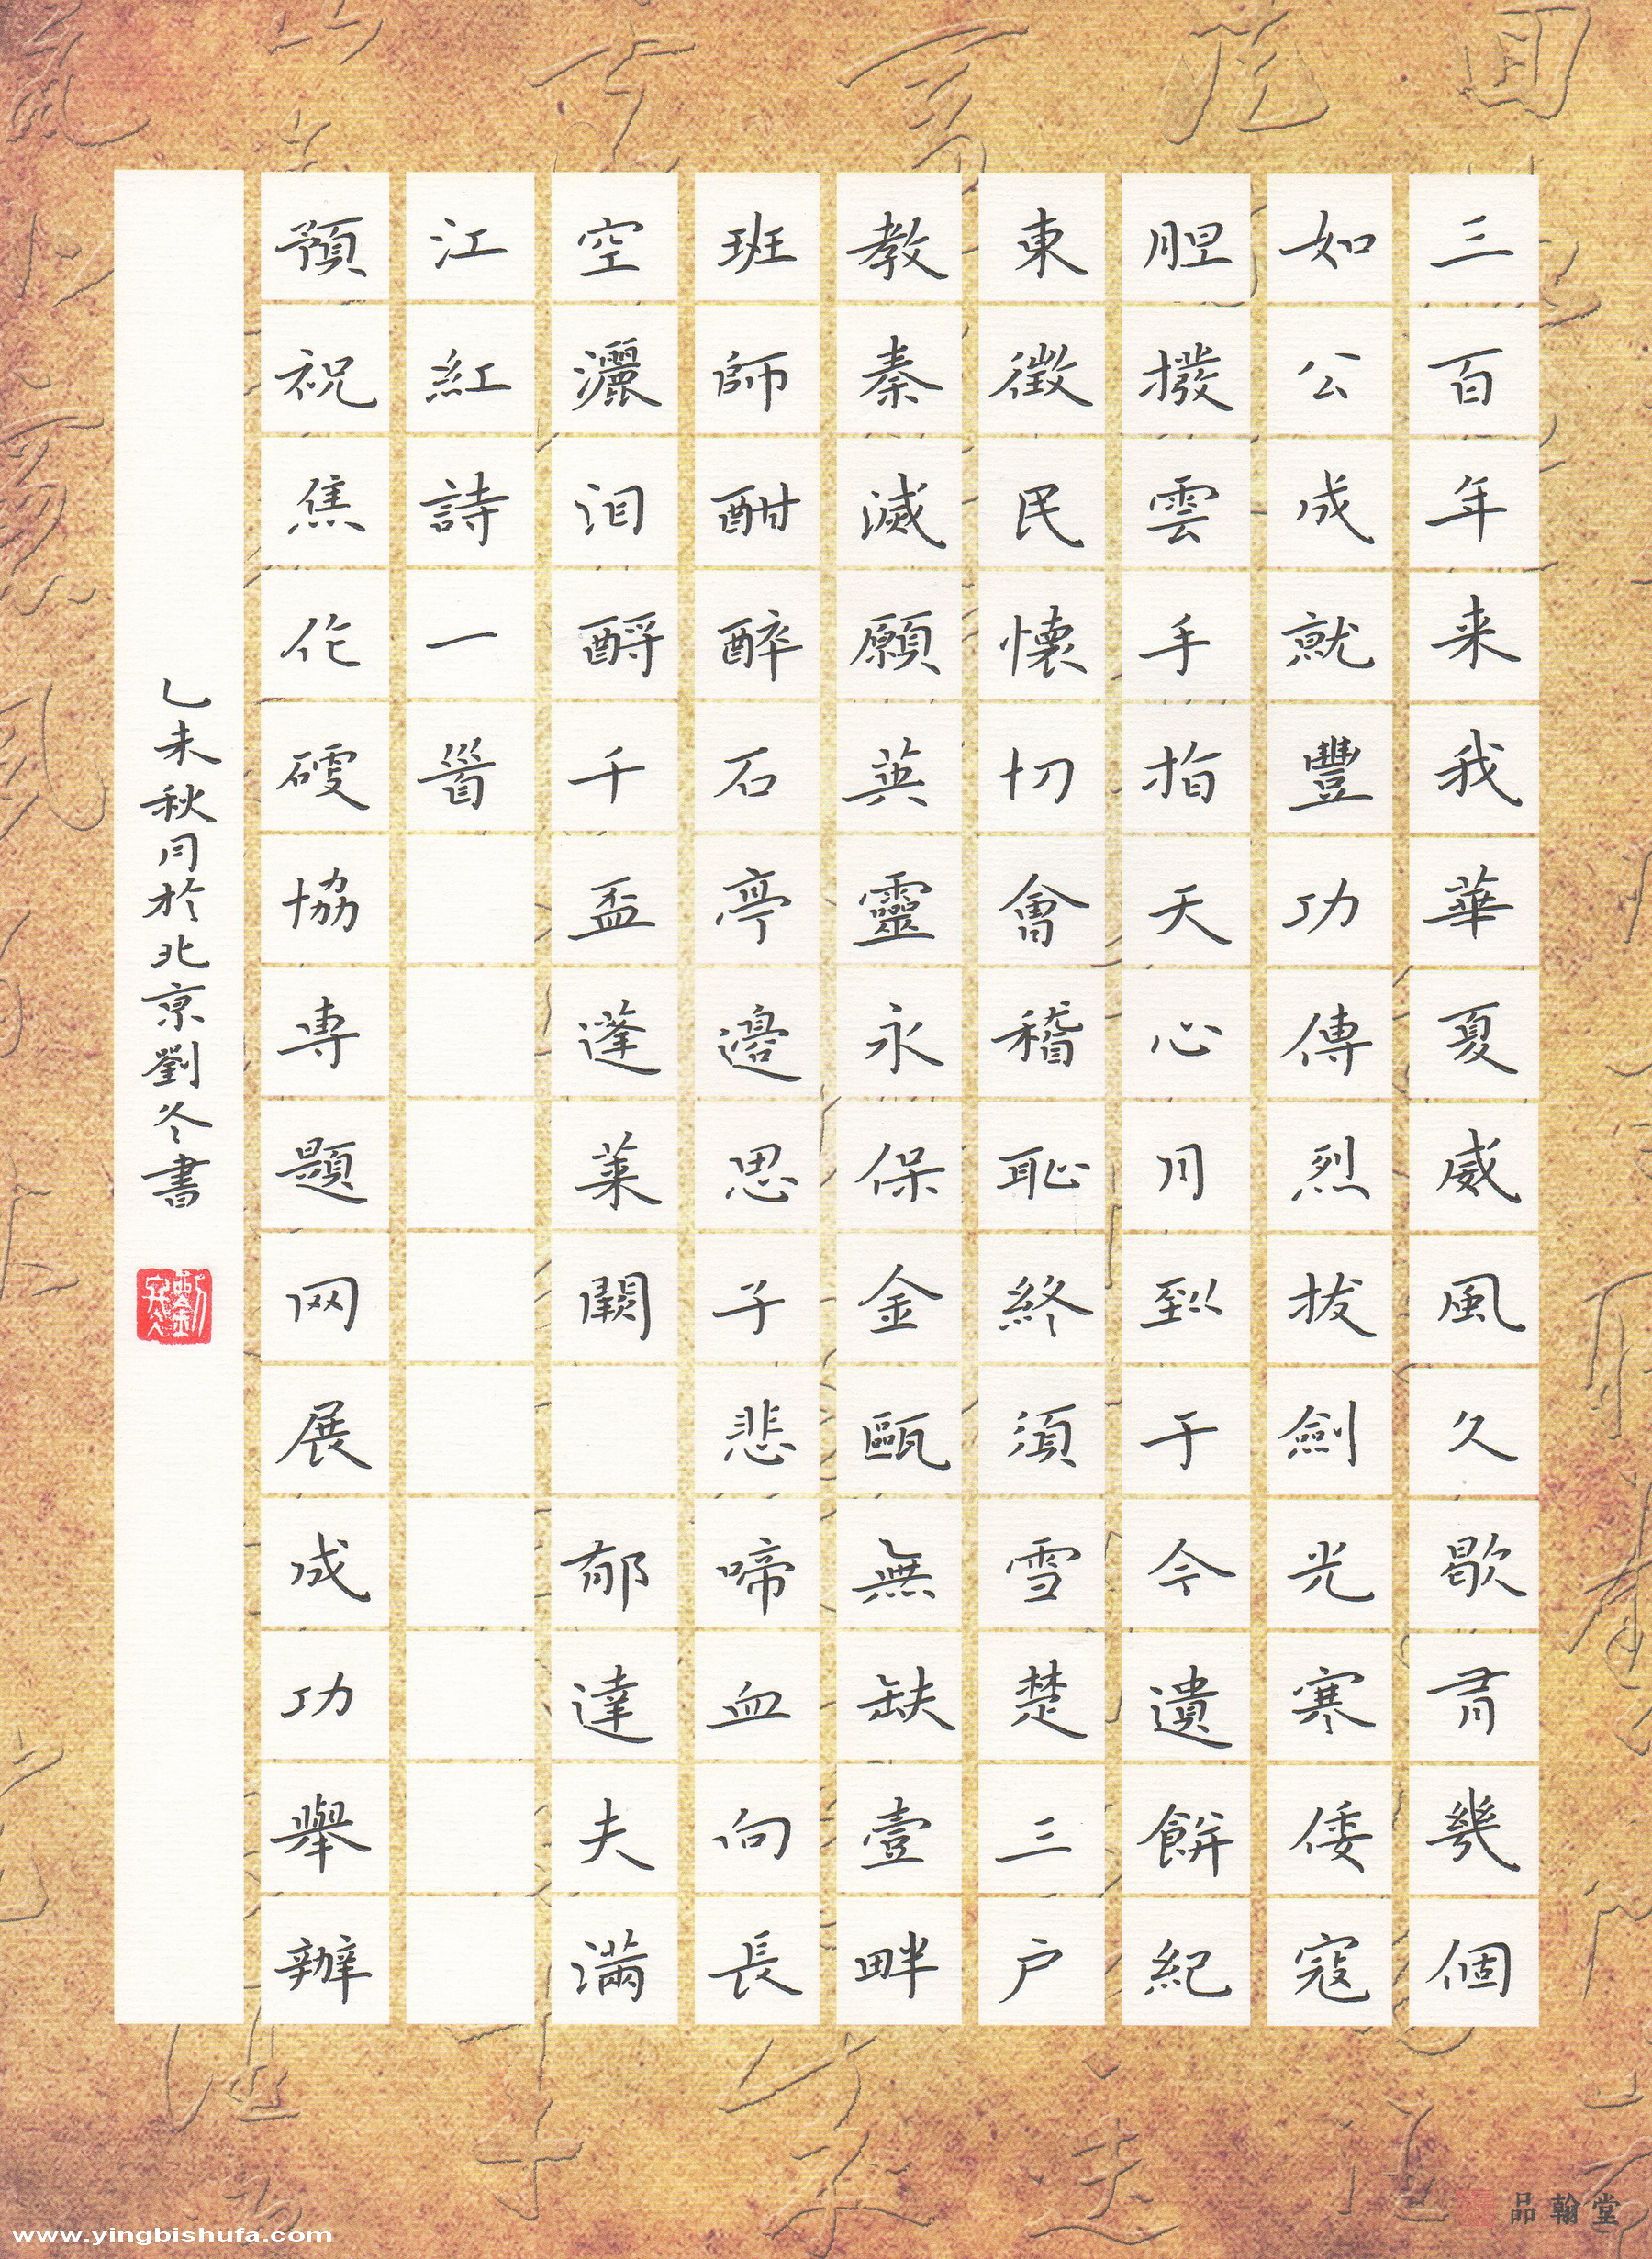 三百年来我華夏威風久歇有幾個
如公成就豐功傳烈拔劍光寒倭寇
胆撥雲手指天心月到于今遺餅紀
東徵民懷切會稽恥終須雪楚三户
教秦滅願英靈永保金甌無缺壹畔
班師酣醉石亭邊思子悲啼血向長
空灑泪酹千盃蓬萊闕 郁達夫滿
江紅詩一首
預祝焦作硬協專題网展成功舉辦
乙未秋月於北京劉冬書
品翰堂
www.yingbishufa.com